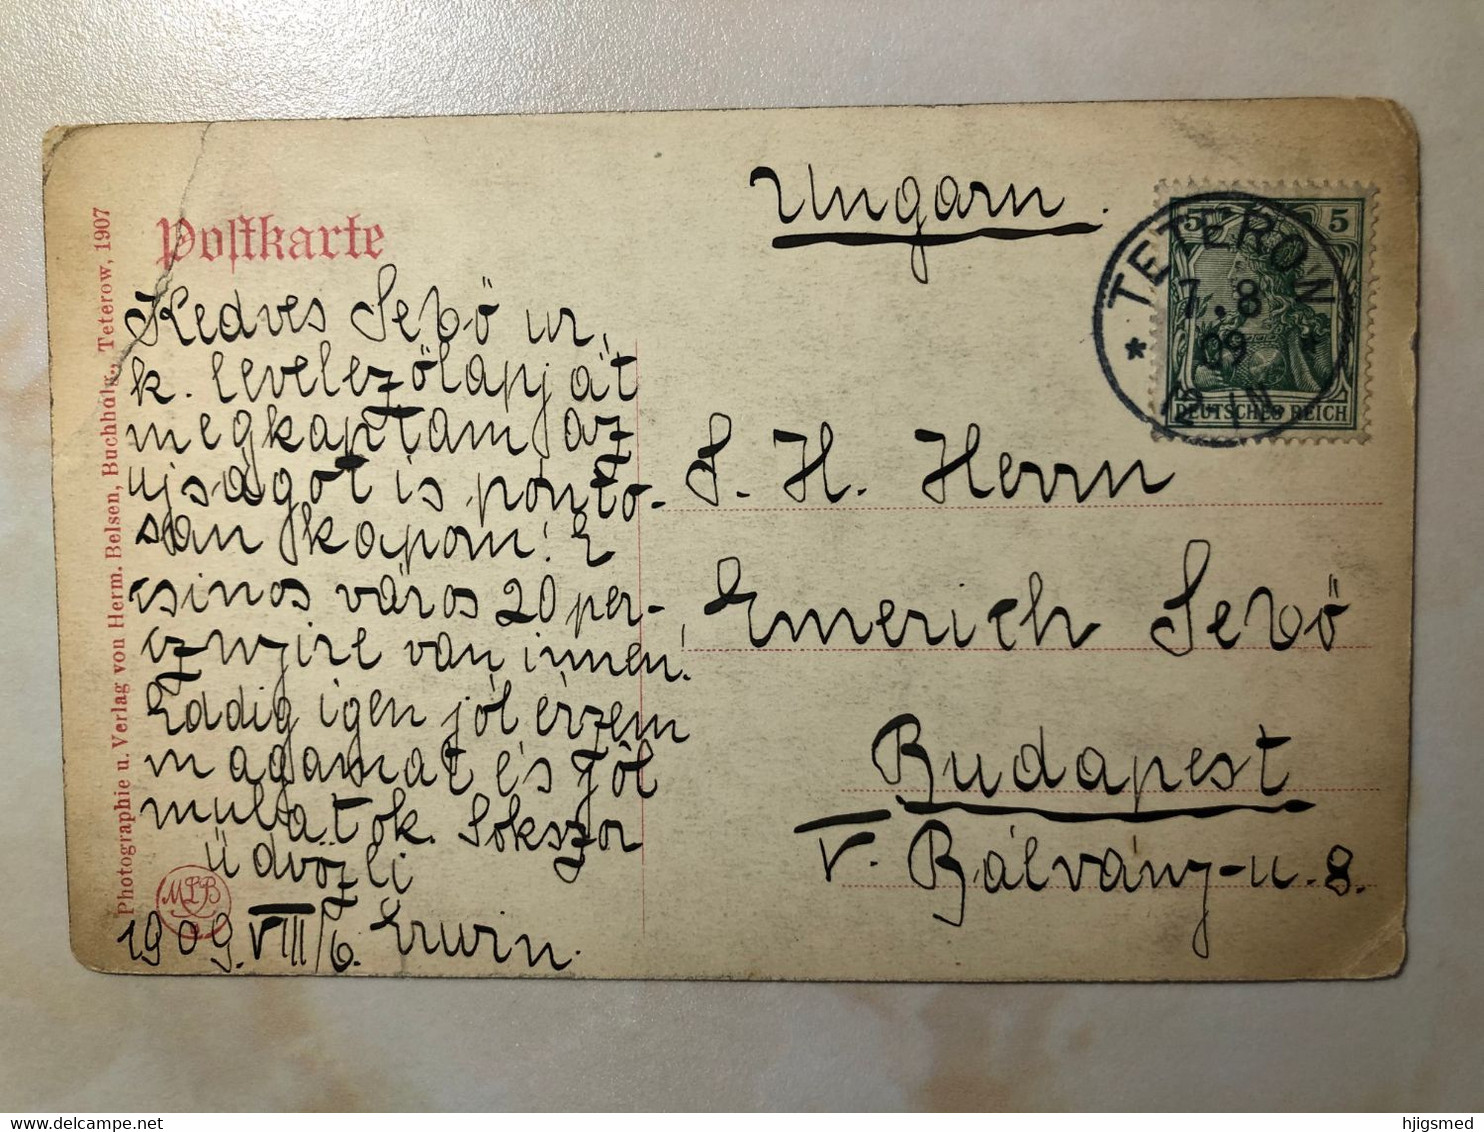 Postkarte
Ungarn.
5 5
TETEROW
7.8
09
DEUTSCHES REICH
Kedves Sebő ur,
k. levelezőlapját
megkaptam az
ujságot is ponto-
san kapom! E
csinos város 20 per-
cznyire van innen!
Eddig igen jól érzem
magamat és jól
mulatok. Sokszor
üdvözli
1909. VIII/6. Erwin.
S. H. Herrn
Emerich Sebő
Budapest
V. Bálvány-u. 8.
Photographie u. Verlag von Herm. Belsen, Buchhdlg., Teterow, 1907
MLB
delcampe.net
hjlgsmed